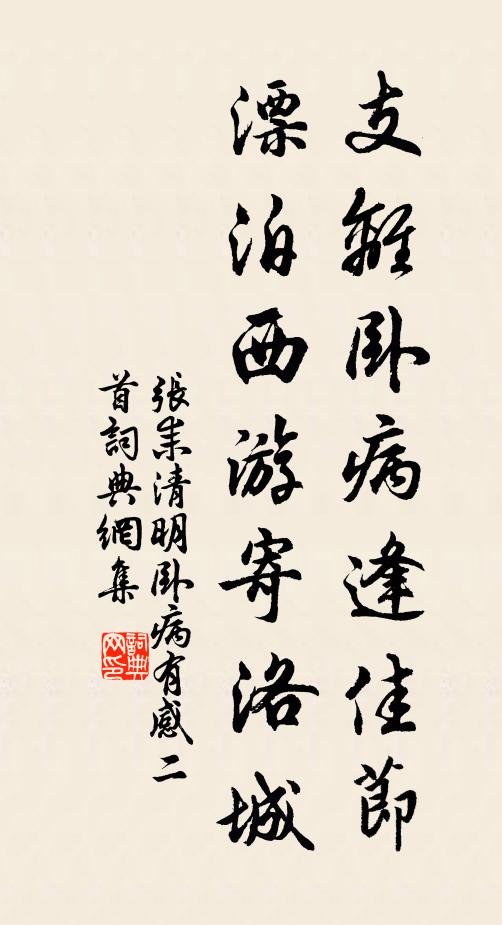 支離卧病逢佳節
漂泊西游寄洛城
張耒清明卧病有感二
首詞典網集
詞典網印